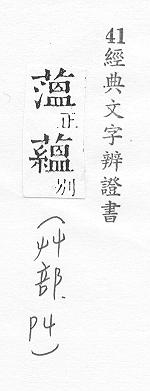 41經典文字辨證書
薀正
蘊別
(艸部.P4)